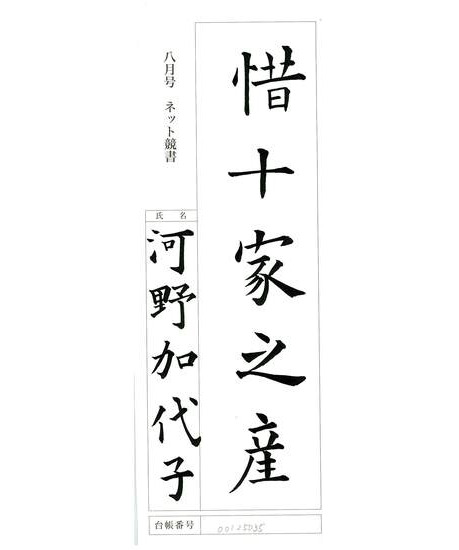 惜十家之産
八月号 ネット競書
氏 名
河野加代子
台帳番号
00125035